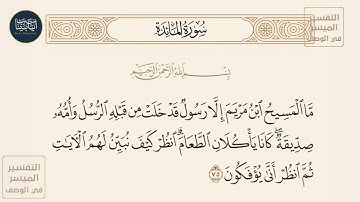 سُورَةُ المَائِدَة
التفسير
الميسر
في الوصف
بِسْمِ اللَّهِ الرَّحْمَٰنِ الرَّحِيمِ
مَّا الْمَسِيحُ ابْنُ مَرْيَمَ إِلَّا رَسُولٌ قَدْ خَلَتْ مِن قَبْلِهِ الرُّسُلُ وَأُمُّهُ
صِدِّيقَةٌ ۖ كَانَا يَأْكُلَانِ الطَّعَامَ ۗ انظُرْ كَيْفَ نُبَيِّنُ لَهُمُ الْآيَاتِ
ثُمَّ انظُرْ أَنَّىٰ يُؤْفَكُونَ ٧٥
التفسير
الميسر
في الوصف